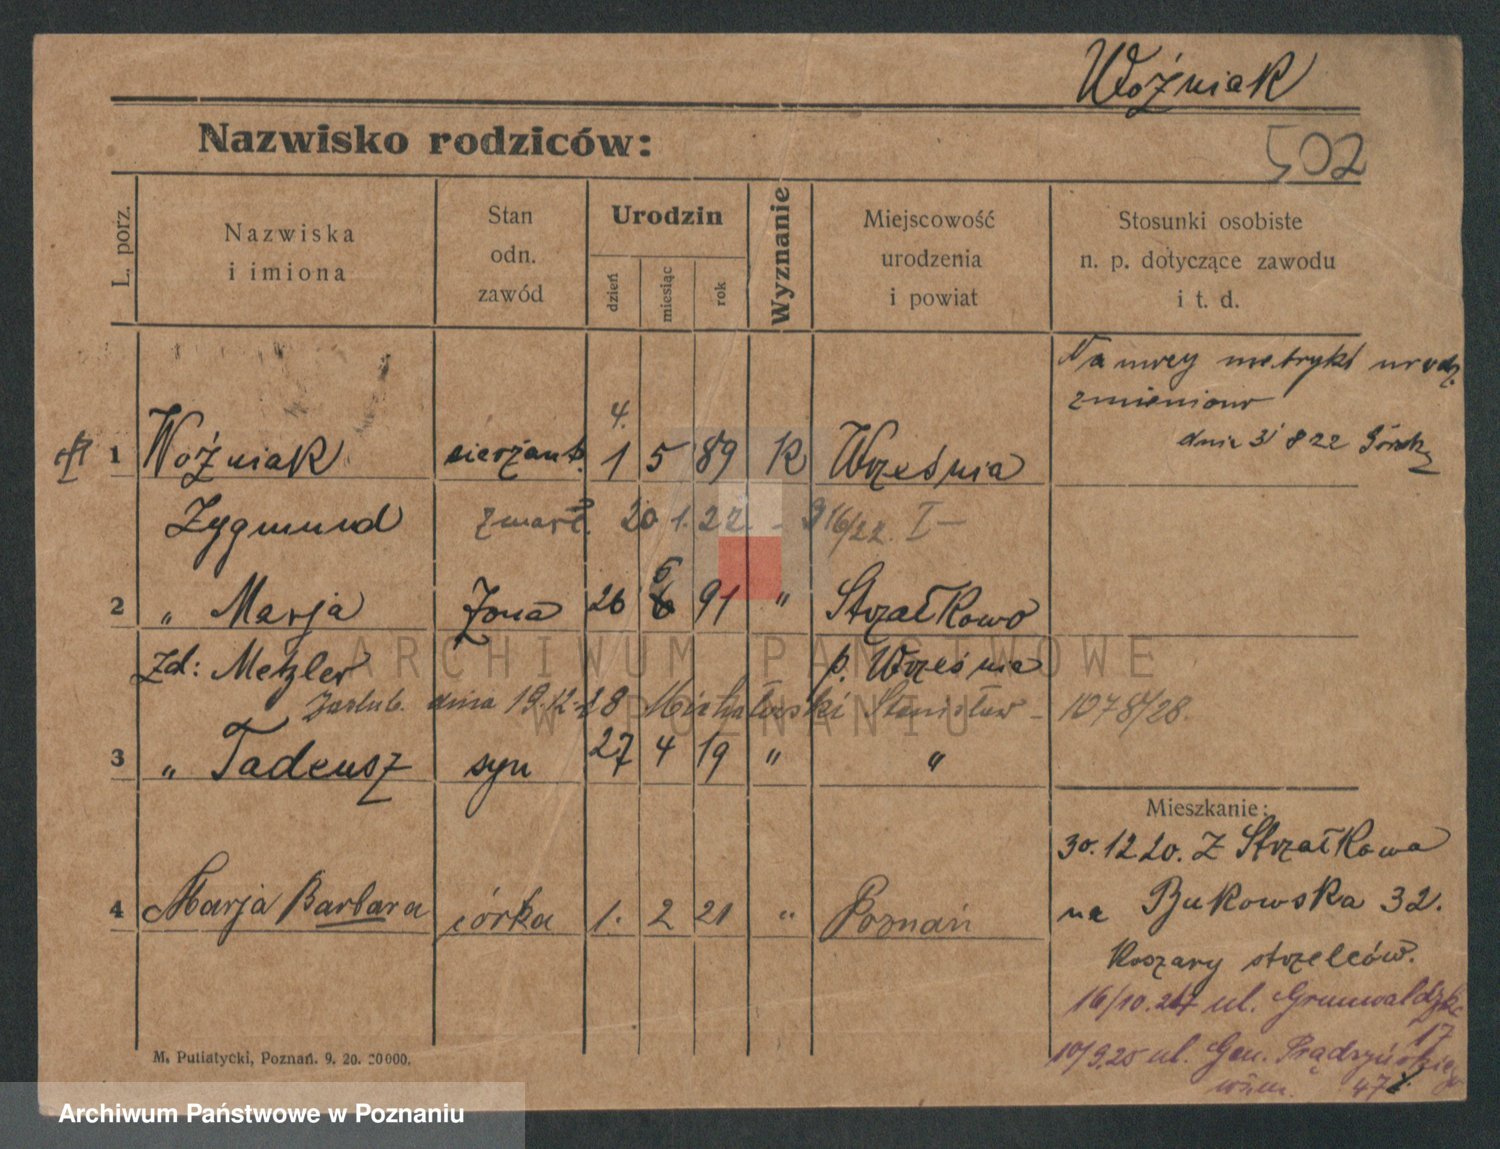 Woźniak
Nazwisko rodziców:
502
L. porz.
Nazwiska
i imiona
Stan
odn.
zawód
Urodzin
dzień
miesiąc
rok
Wyznanie
Miejscowość
urodzenia
i powiat
Stosunki osobiste
n. p. dotyczące zawodu
i t. d.
metryki urodz.
zmieniono
dnia 31 8 22
4.
1 Woźniak sierżant. 1 5 89 K Września
Zygmund zmarł. 20 1. 22 - 916/22. I-
5
2 „ Marja żona 26 6 91 „ Strzałkowo
zd: Metzler p. Września
zaślub. dnia 19.12.28 Michałowski Stanisław - 1078/28.
3 „ Tadeusz syn 27 4 19 „ „
Mieszkanie:
30.12 20. Z Strzałkowa
4 Marja Barbara córka 1. 2 21 „ Poznań
na Bukowska 32.
Koszary strzelców.
16/10. ul. Grunwaldzka
17
10/9.25 ul. Gen. Prądzyńskiego
47
M. Putiatycki, Poznań. 9. 20. 20000.
ARCHIWUM PAŃSTWOWE
W POZNANIU
Archiwum Państwowe w Poznaniu